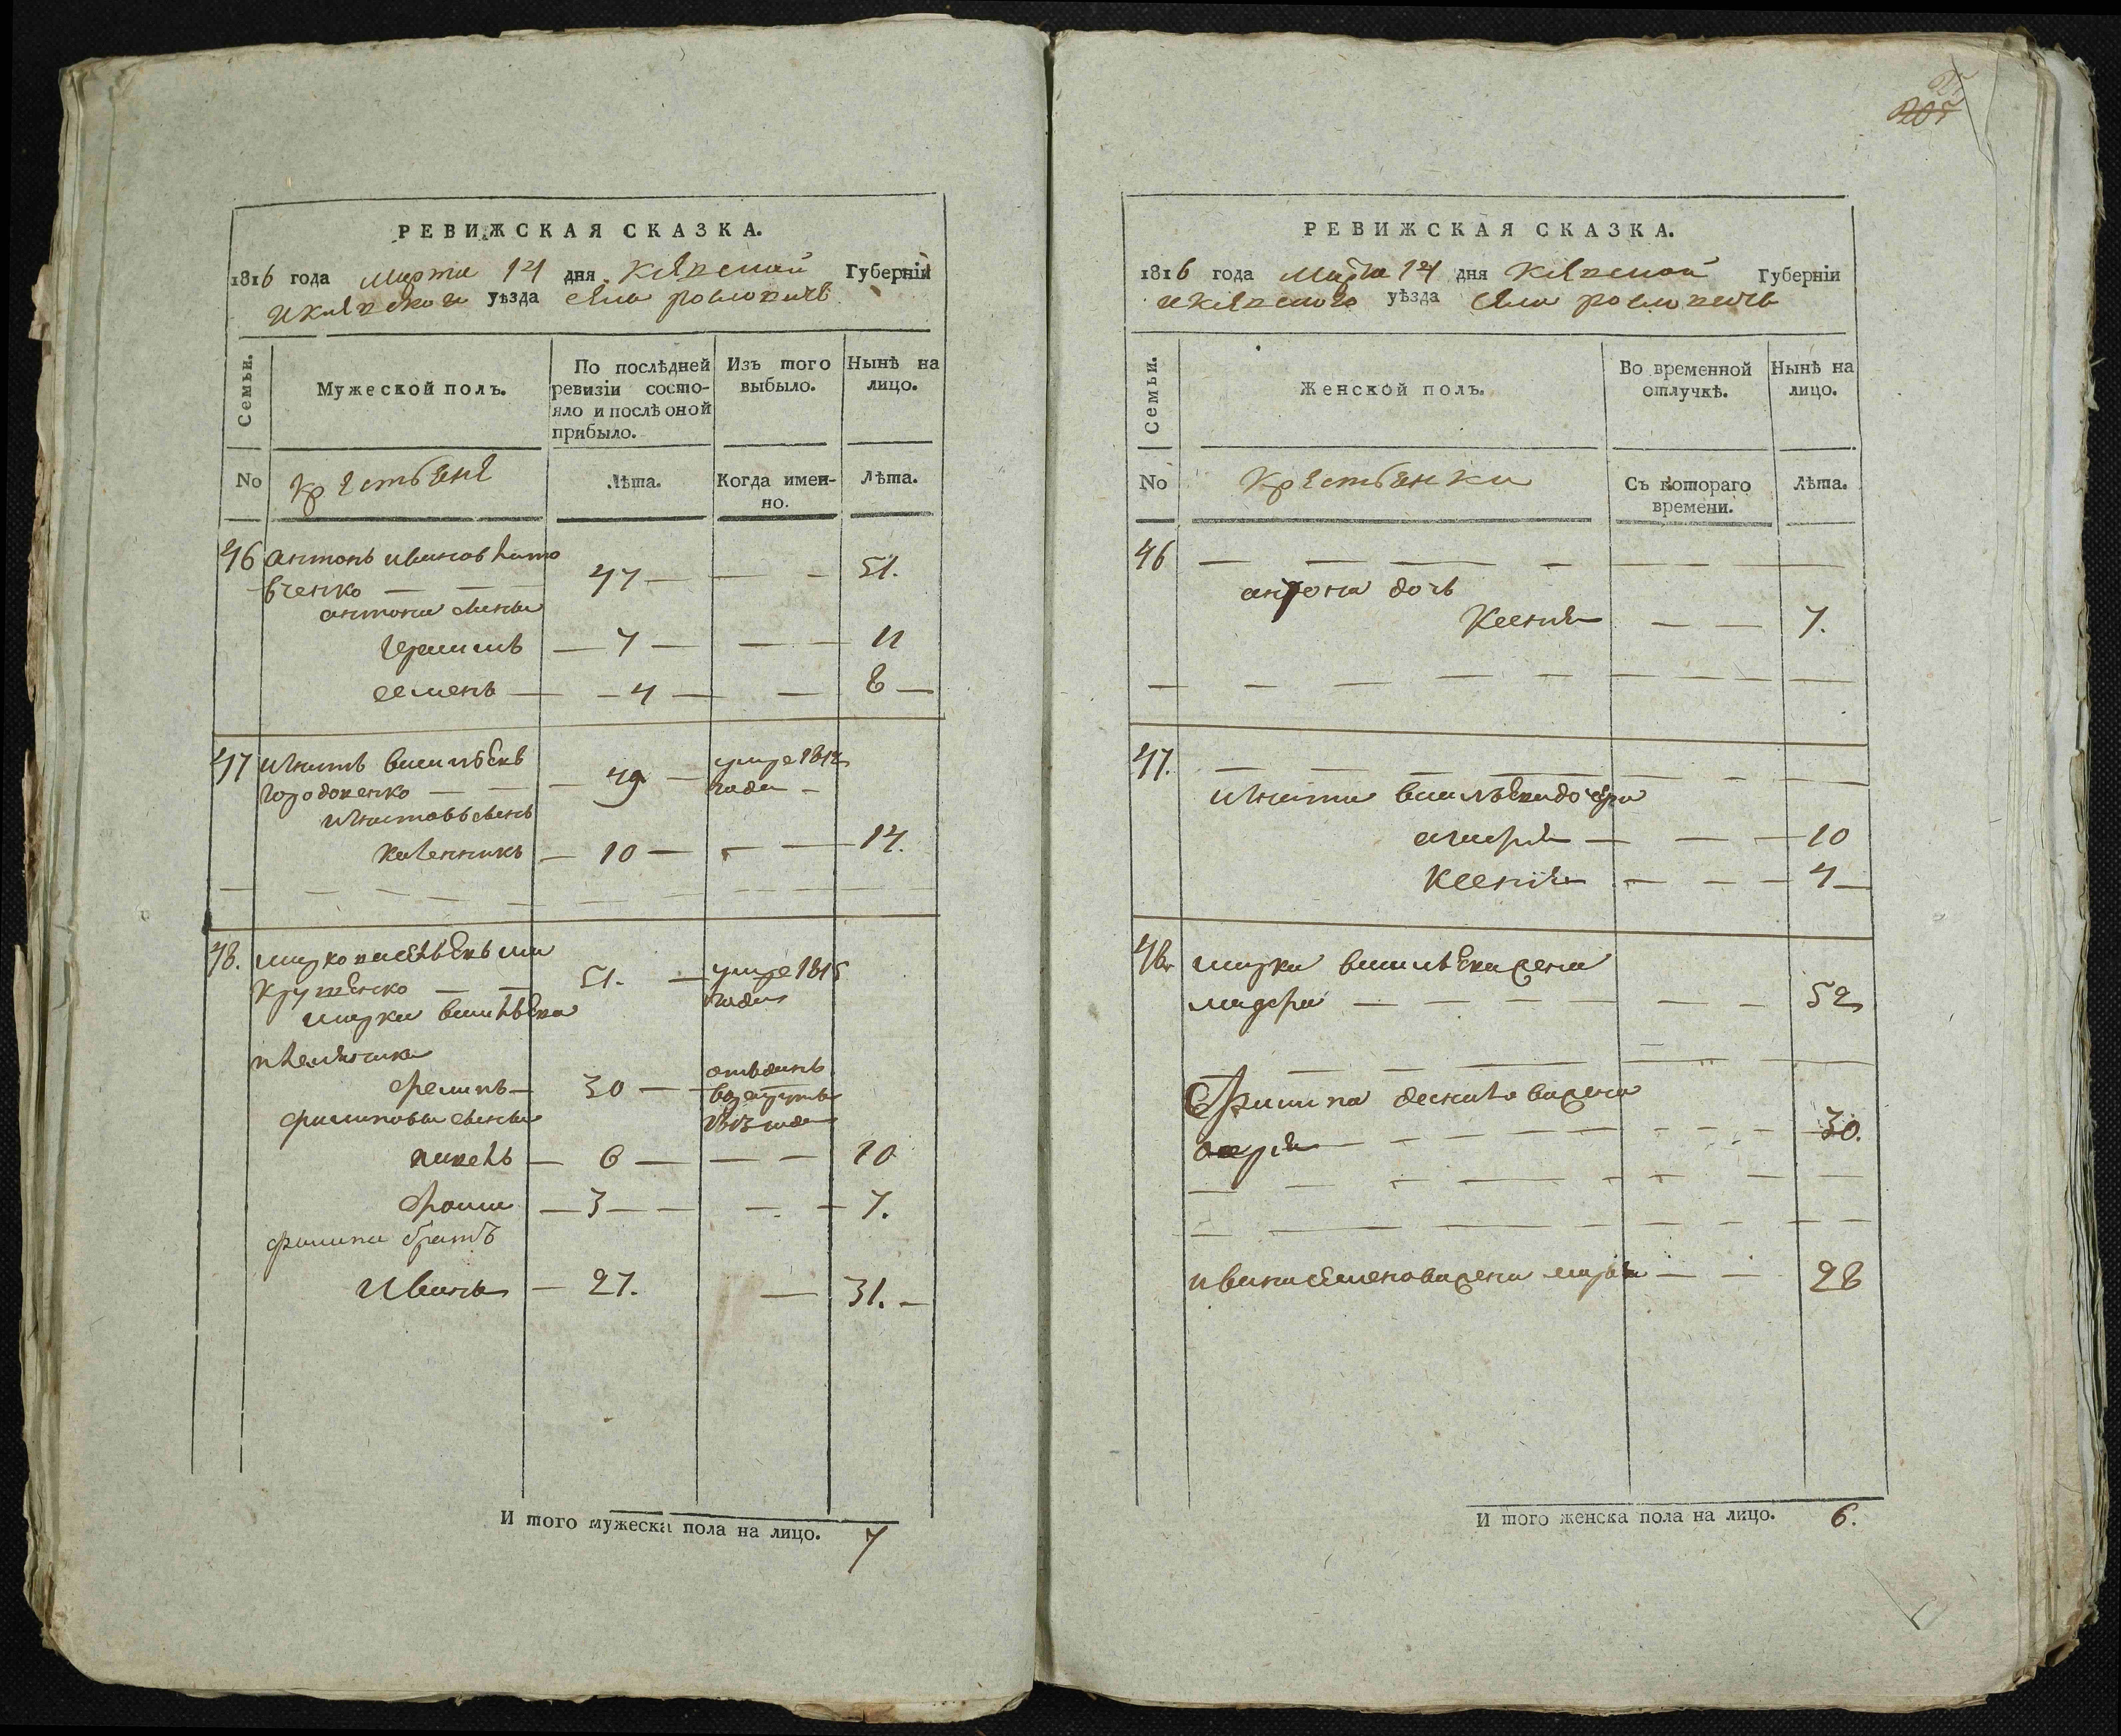 РЕВИЖСКАЯ СКАЗКА.
1816 года марта 14 дня Киевской Губерніи
и Киевского уѣзда села
Семьи.
Мужеской полъ.
По послѣдней ревизіи состо-
яло и послѣ оной прибыло.
Изъ того выбыло.
Нынѣ на лицо.
No
крестьяне
Лѣта.
Когда имен-
но.
Лѣта.
46 антонъ иванов
47 — — — 51.
антона сыны
герасимъ — 7 — — — 11
семенъ — 4 — — 8 —
47 игнатъ васильевъ
— 49 — умре 1812
года —
игнатовъ сынъ
каленикъ — 10 — — 14.
48. марко василевъ
51. — умре 1815
года
марка василева
племеника
филипъ — 30 — отданъ
в рекруты
1813 года
филиповы сыны
— 6 — — — 10
фома — 3 — — — 7.
филипа братъ
Иванъ — 27. — 31. —
И того мужеска пола на лицо. 7
207
РЕВИЖСКАЯ СКАЗКА.
1816 года Марта 14 дня Киевской Губерніи
и Киевского уѣзда села
Семьи.
Женской полъ.
Во временной отлучкѣ.
Нынѣ на лицо.
No
крестьянки
Съ котораго
времени.
Лѣта.
46
антона дочь
Ксения — — 7.
47.
игната василева дочери
— — — 10
Ксения — — — 4 —
48. марка василева жена
— — — 52
Филипа жена
— — — 30.
ивана семенова жена марья — — 28
И того женска пола на лицо. 6.